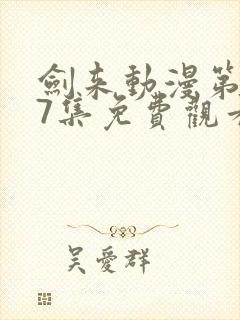 劍来動漫第
7集免費觀看
吴愛群